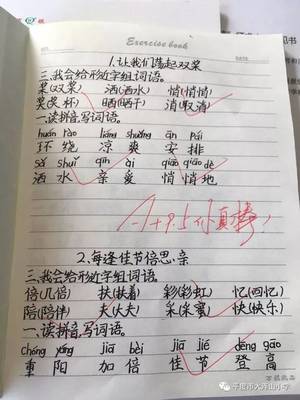 Exercise book
1.让我们荡起双桨
三、我会给形近字组词语。
桨(双桨) 洒(洒水) 悄(悄悄)
奖(奖杯) 晒(晒干) 消(取消)
一、读拼音,写词语。
huán rào liáng shuǎng ān pái
环绕 凉爽 安排
sǎ shuǐ qīn ài qiāo qiāo de
洒水 亲爱 悄悄地
2.每逢佳节倍思亲
三、我会给形近字组词语。
倍(几倍) 扶(扶着) 彩(彩虹) 忆(回忆)
陪(陪伴) 夫(大夫) 采(采蜜) 快(快乐)
一、读拼音,写词语。
chóng yáng jiā bèi jiā jié dēng gāo
重阳 加倍 佳节 登高